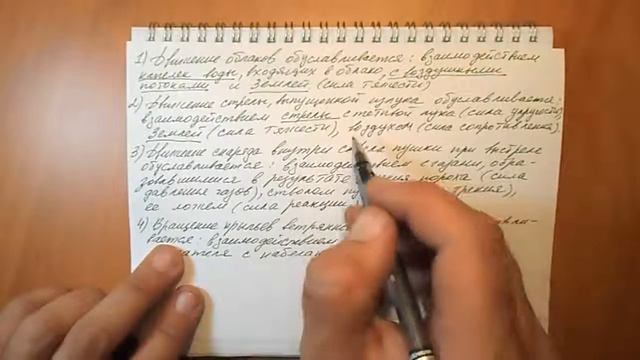 1) Движение облаков обуславливается: взаимодействием
капелек воды, входящих в облако, с воздушными
потоками и Землей (сила тяжести)
2) Движение стрелы, выпущенной из лука обуславливается:
взаимодействием стрелы с тетивой лука (сила упругости),
Землей (сила тяжести), воздухом (сила сопротивления).
3) Движение снаряда внутри ствола пушки при выстреле
обуславливается: взаимодействием с газами, обра-
зовавшимися в результате пороха (сила
давления газов), стволом трения),
ее ложем (сила реакции
4) Вращение крыльев
вается: взаимодействием
с